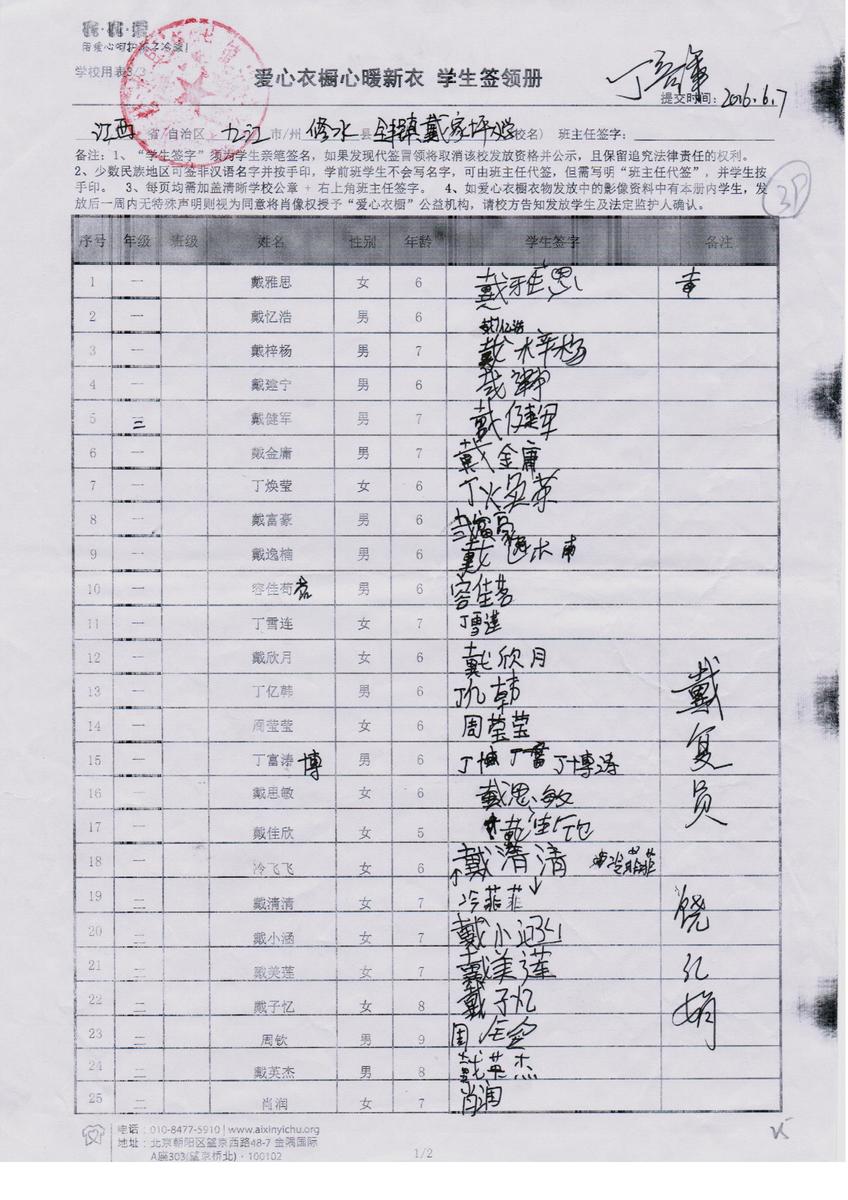 用爱心呵护孩子冷暖!
学校用表3/3
爱心衣橱心暖新衣 学生签领册
提交时间: 2016.6.7
江西 省/自治区 九江 市/州 修水 县 镇戴家坪小学 (校名) 班主任签字:
备注: 1、“学生签字”须为学生亲笔签名,如果发现代签冒领将取消该校发放资格并公示,且保留追究法律责任的权利。
2、少数民族地区可签非汉语名字并按手印,学前班学生不会写名字,可由班主任代签,但需写明“班主任代签”,并学生按
手印。 3、每页均需加盖清晰学校公章 + 右上角班主任签字。 4、如爱心衣橱衣物发放中的影像资料中有本册内学生,发
放后一周内无特殊声明则视为同意将肖像权授予“爱心衣橱”公益机构,请校方告知发放学生及法定监护人确认。
3P
序号 年级 班级 姓名 性别 年龄 学生签字 备注
1 一 戴雅思 女 6 戴雅思
2 一 戴忆浩 男 6 戴忆浩
3 一 戴梓杨 男 7 戴梓杨
4 一 戴建宁 男 6
5 三 戴健军 男 7 戴健军
6 一 戴金庸 男 7 戴金庸
7 一 丁焕莹 女 6
8 一 戴富豪 男 6 戴富豪
9 一 戴逸楠 男 6 戴逸楠
10 一 容佳荀 男 6 容佳茗
11 一 丁雪连 女 7 丁雪莲
12 一 戴欣月 女 6 戴欣月
13 一 丁亿韩 男 6 丁亿韩
14 一 周莹莹 女 6 周莹莹
15 一 丁富涛 博 男 6 丁博 丁富 丁博涛
16 一 戴思敏 女 6 戴思敏
17 一 戴佳欣 女 5
18 一 冷飞飞 女 6 戴清清 冷菲菲
19 二 戴清清 女 7 冷菲菲
20 二 戴小涵 女 7 戴小涵
21 二 戴美莲 女 7 戴美莲
22 二 戴子忆 女 8 戴子忆
23 二 周钦 男 9
24 二 戴英杰 男 8 戴英杰
25 二 肖润 女 7 肖润
戴复员
饶红娟
电话: 010-8477-5910 | www.aixinyichu.org
地址: 北京朝阳区望京西路48-7 金隅国际
A座303(望京桥北)·100102
1/2